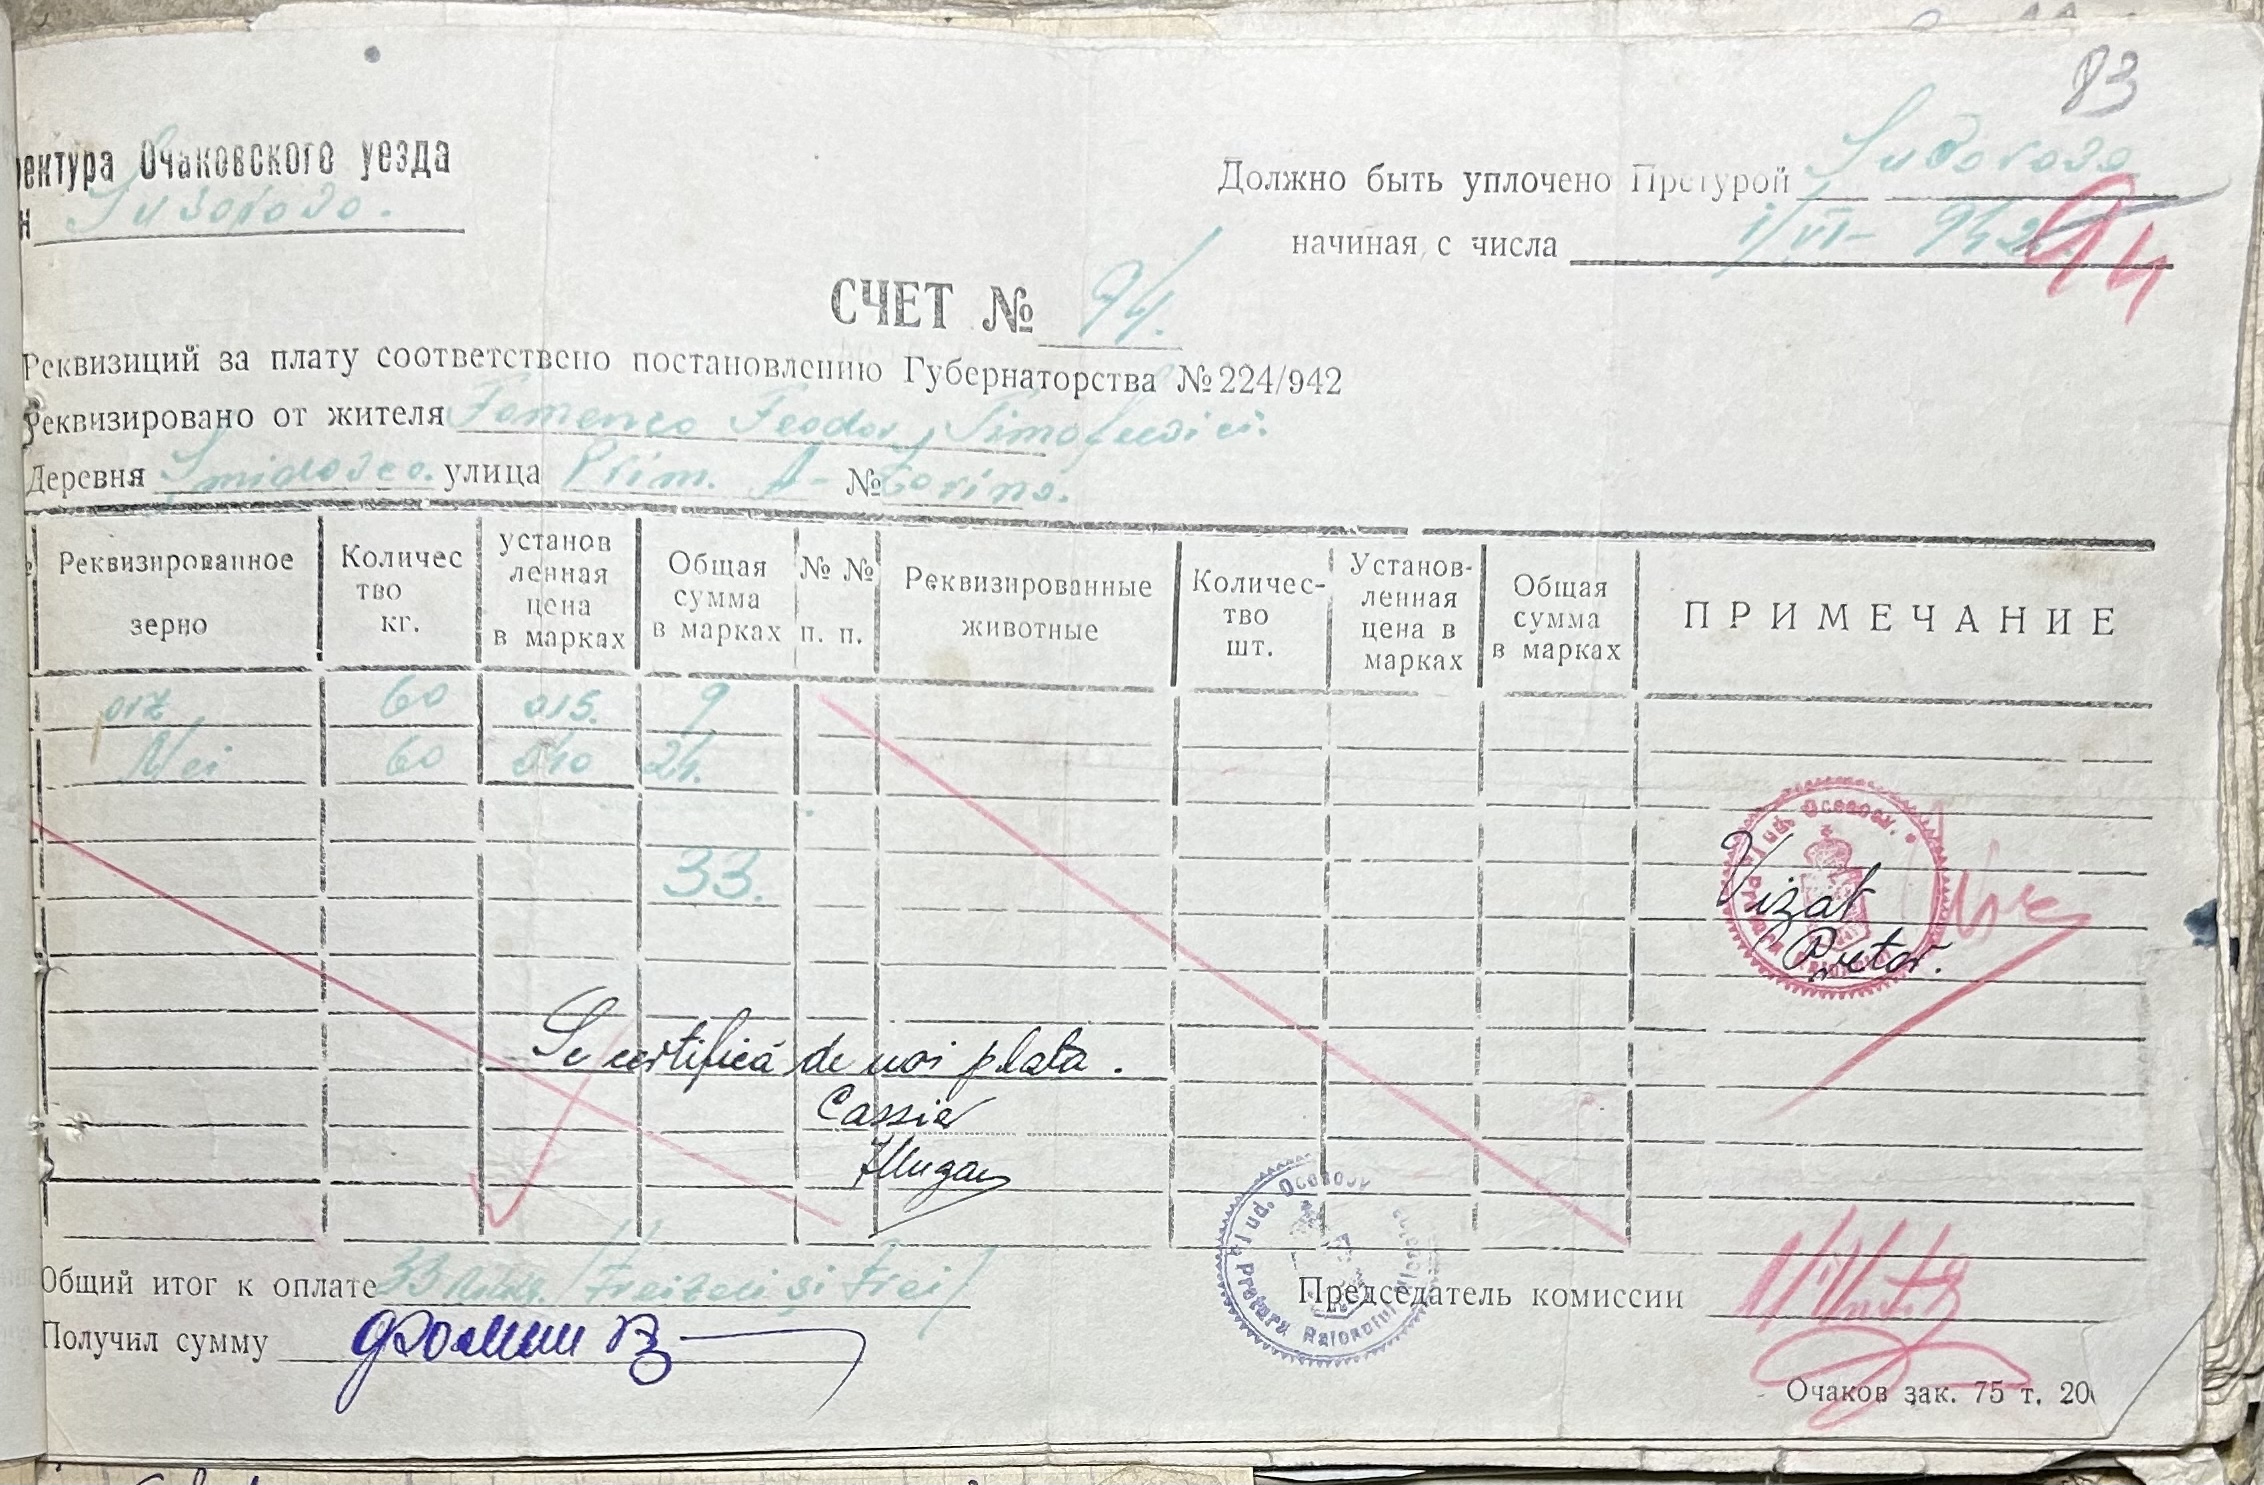 83
ектура Очаковского уезда
н Suvorovo.
Должно быть уплочено Претурой Suvorovo
начиная с числа 1/VI- 942
94
СЧЕТ № 94.
Реквизиций за плату соответствено постановлению Губернаторства №224/942
Реквизировано от жителя Fomenco Feodor Timofeevici.
Деревня улица Prim. A- №
Реквизированное зерно Количес тво кг. установ ленная цена в марках Общая сумма в марках №№ п. п. Реквизированные животные Количес- тво шт. Установ- ленная цена в марках Общая сумма в марках ПРИМЕЧАНИЕ
orz 60 015. 9
Mei 60 040 24.
33.
Jud. Oceacov.
Vizat
Pretor.
Se certifică de noi plata.
Cassier
Jud. Oceacov
Pretura Raionului
Общий итог к оплате 33 /Treizeci și Trei/
Председатель комиссии
Получил сумму
Очаков зак. 75 т. 20